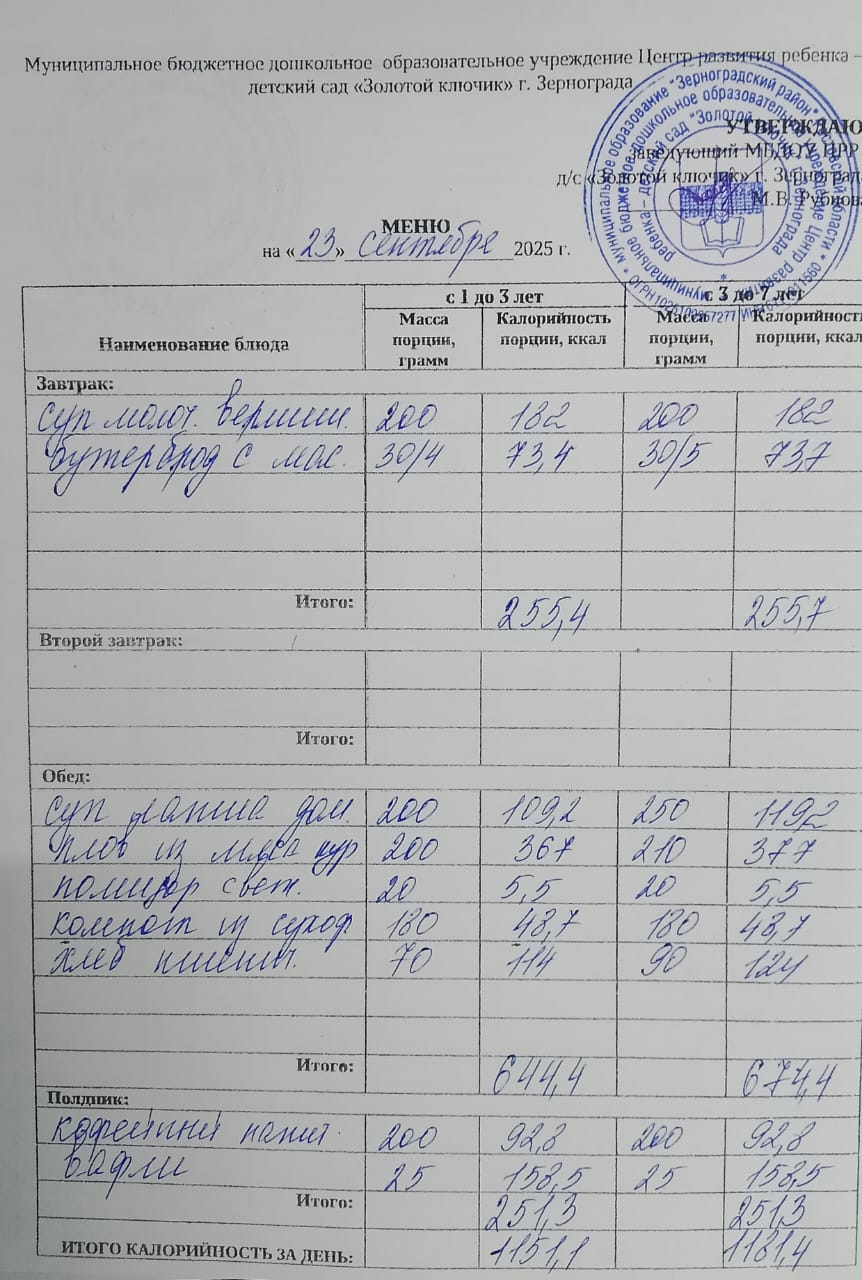 Муниципальное бюджетное дошкольное образовательное учреждение Центр развития ребенка –
детский сад «Золотой ключик» г. Зернограда
УТВЕРЖДАЮ
заведующий МБДОУ ЦРР
д/с «Золотой ключик» г. Зернограда
М.В. Рубцова
МЕНЮ
на «23» сентября 2025 г.
Наименование блюда с 1 до 3 лет с 3 до 7 лет
Масса порции, грамм Калорийность порции, ккал Масса порции, грамм Калорийность порции, ккал
Завтрак:
суп молоч. вермиш. 200 182 200 182
бутерброд с мас. 30/4 73,4 30/5 73,7
Итого: 255,4 255,7
Второй завтрак:
Итого:
Обед:
суп лапша дом. 200 109,2 250 119,2
плов из мяса кур 200 367 210 377
помидор свеж. 20 5,5 20 5,5
компот из сухоф. 180 48,7 180 48,7
хлеб пшенич. 70 114 90 124
Итого: 644,4 674,4
Полдник:
кофейный напит. 200 92,8 200 92,8
вафли 25 158,5 25 158,5
Итого: 251,3 251,3
ИТОГО КАЛОРИЙНОСТЬ ЗА ДЕНЬ: 1151,1 1181,4